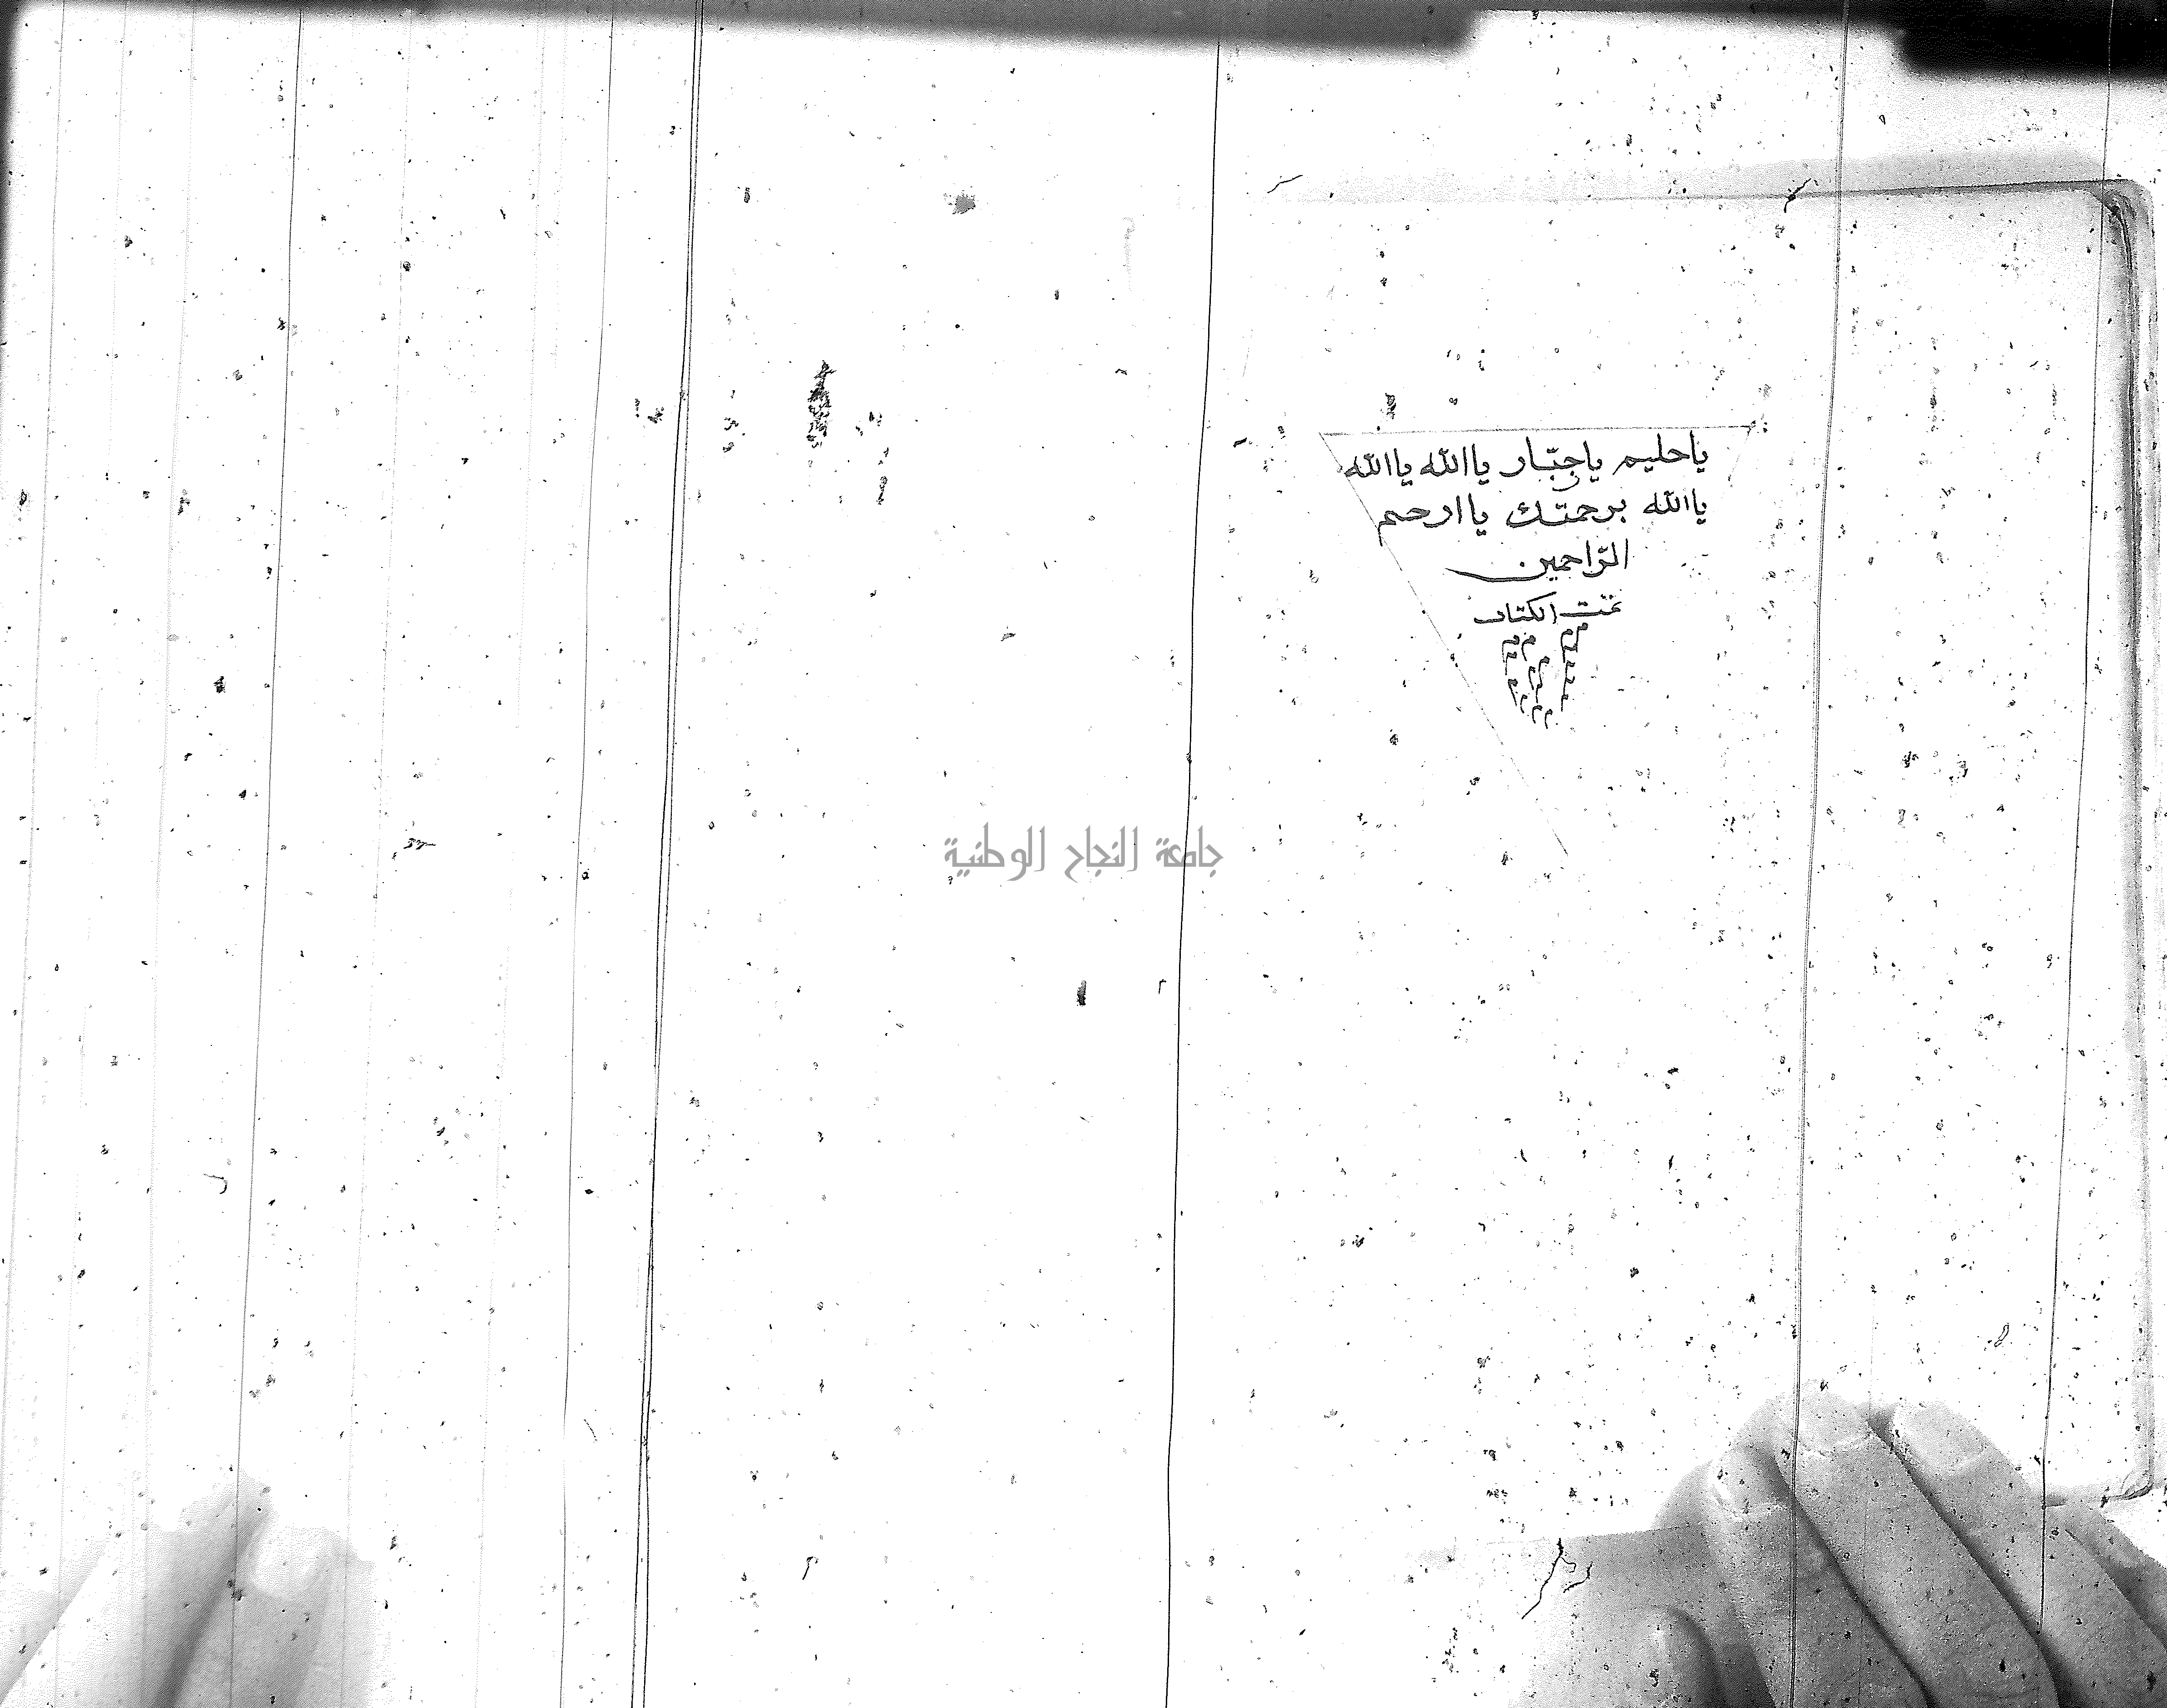 ياحليم ياجبّار ياالله ياالله
ياالله برحمتك ياارحم
الرّاحمين
تمّت الكتاب
جامعة النجاح الوطنية